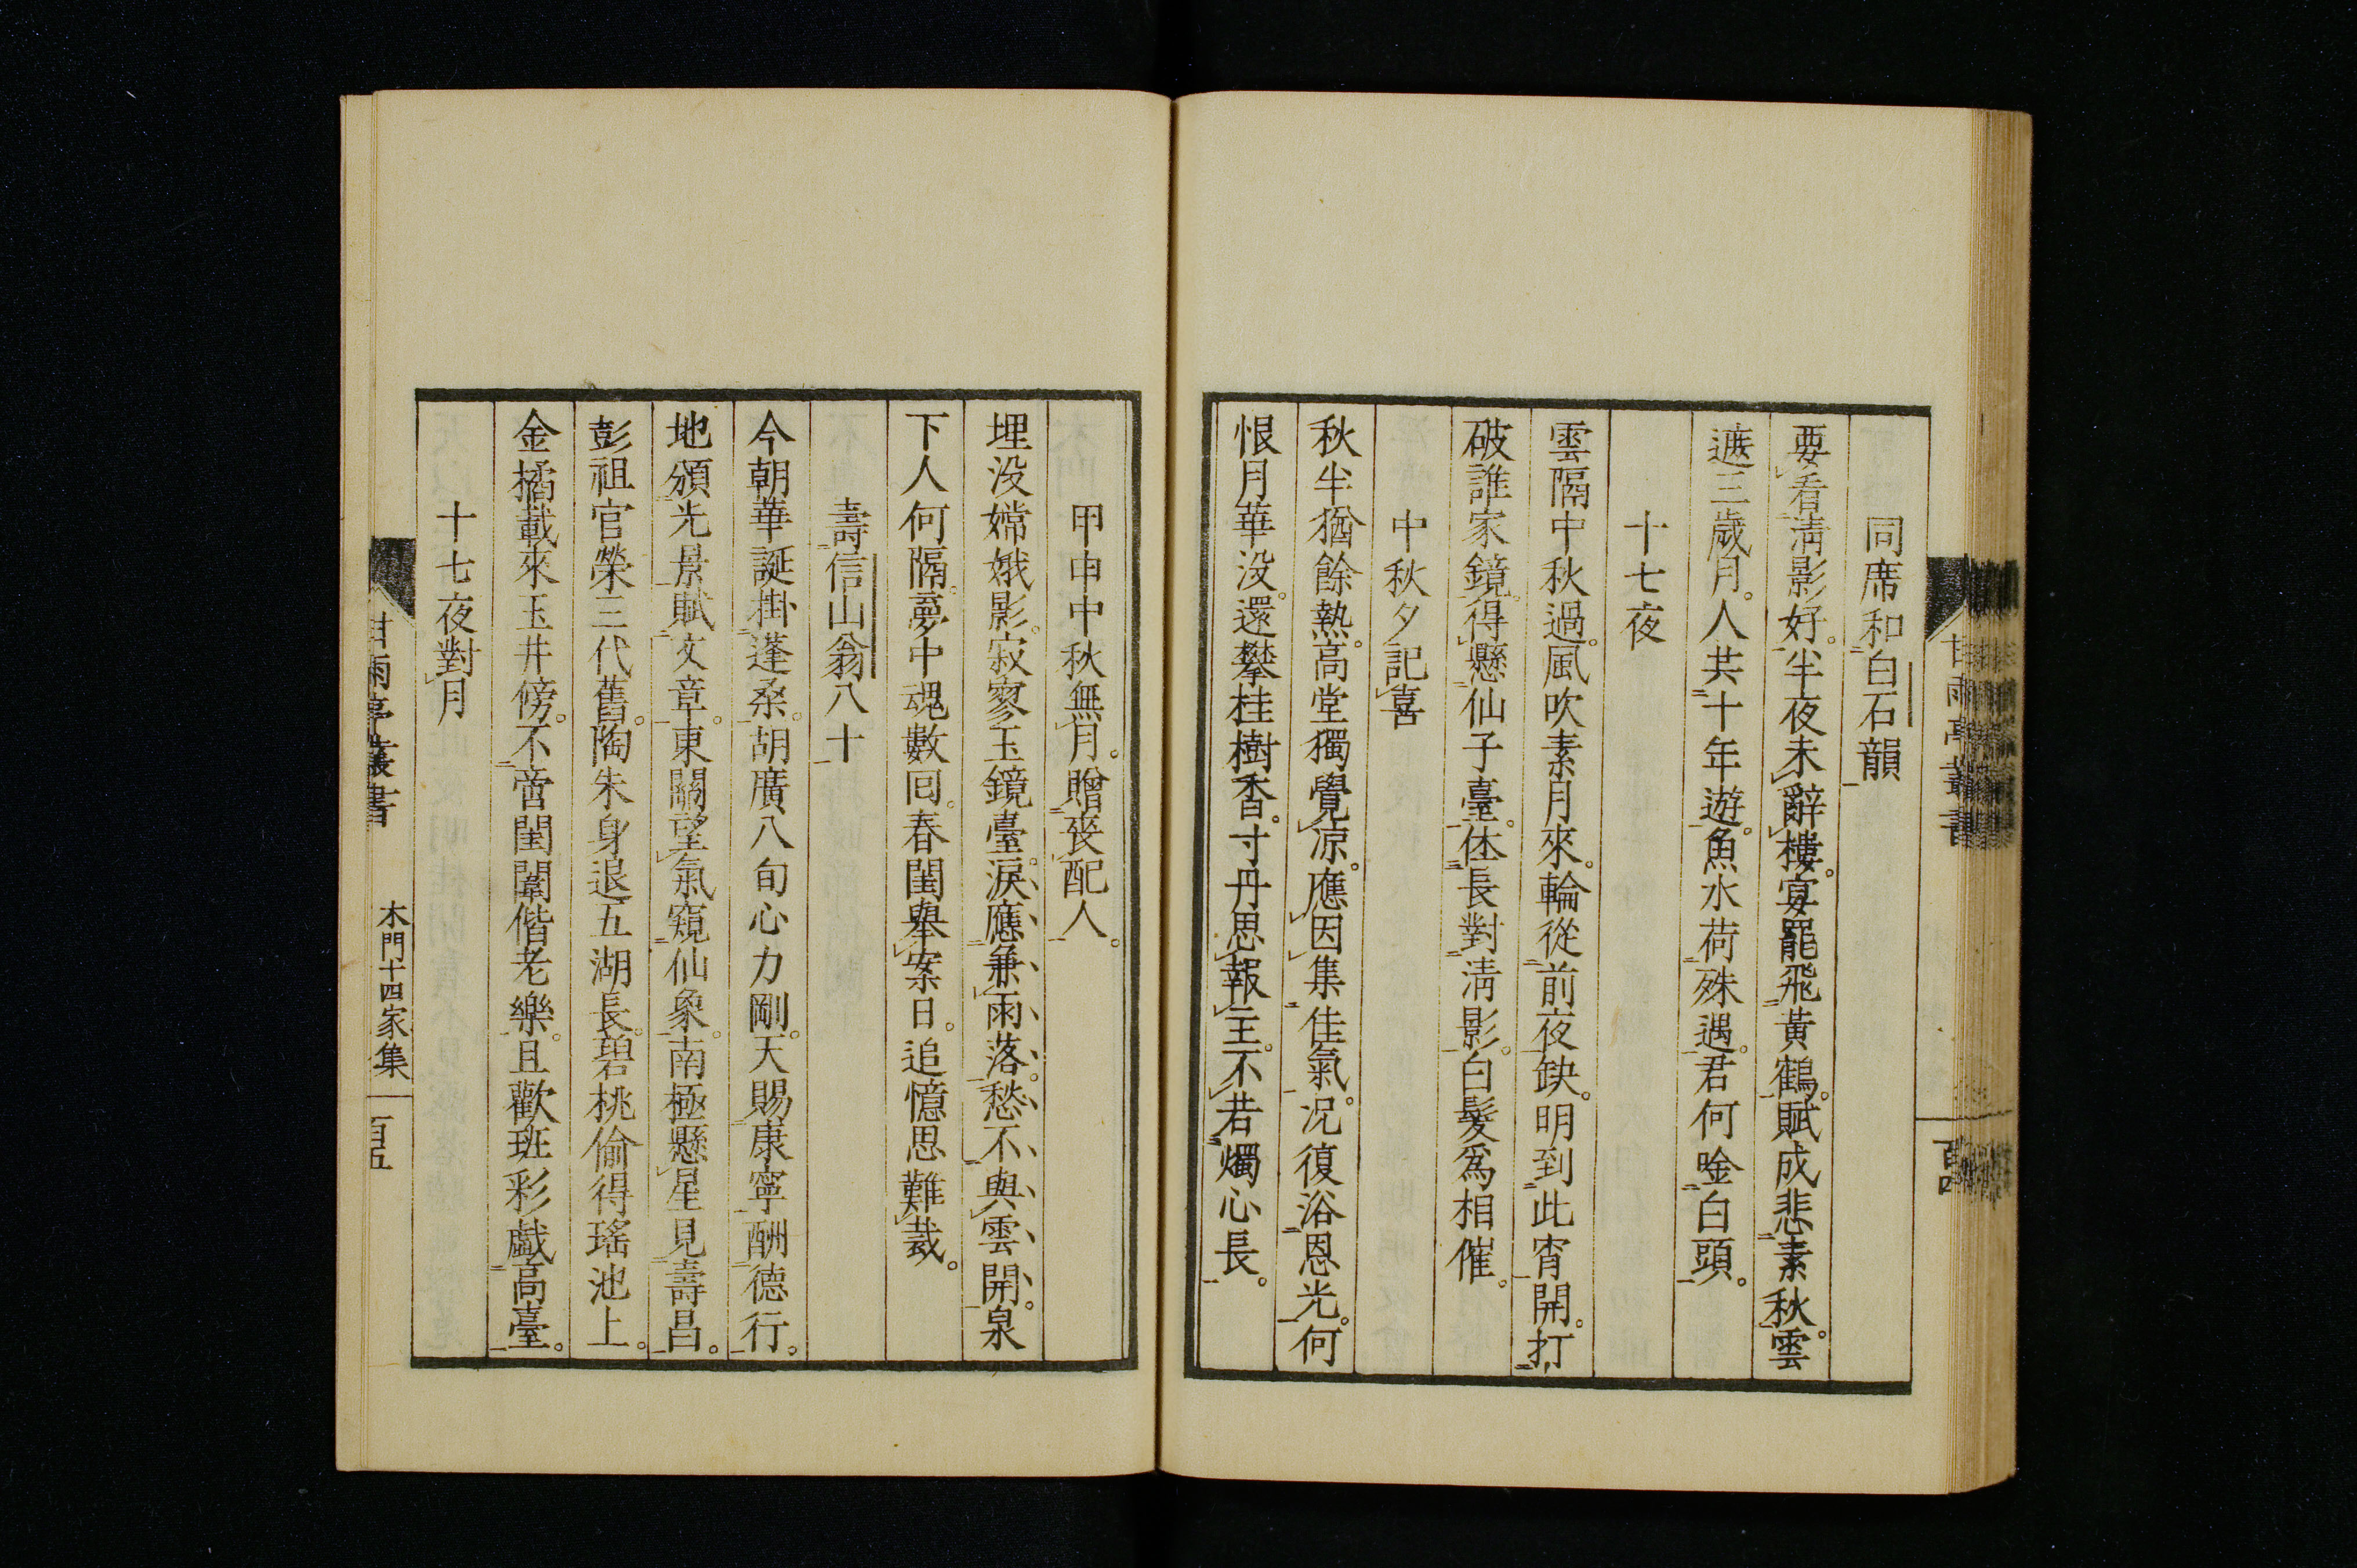 同席和白石韻
要看淸影好。半夜未辭樓。宴罷飛黃鶴。賦成悲素秋。雲
遮三歲月。人共十年遊。魚水荷殊遇。君何唫白頭。
十七夜
雲隔中秋過。風吹素月來。輪從前夜缺。明到此宵開。打
破誰家鏡。得懸仙子臺。休長對淸影。白髮爲相催。
中秋夕記喜
秋半猶餘熱。高堂獨覺凉。應因集佳氣。况復浴恩光。何
恨月華没。還攀桂樹香。寸丹思報主。不若燭心長。
甘雨亭叢書
甲申中秋無月。贈喪配人。
埋没嫦娥影。寂寥玉鏡臺。淚應兼雨落。愁不與雲開。泉
下人何隔。夢中魂數回。春閨擧案日。追憶思難裁。
壽信山翁八十
今朝華誕掛蓬桑。胡廣八旬心力剛。天賜康寧酬德行。
地頒光景賦文章。東關望氣窺仙象。南極懸星見壽昌。
彭祖官榮三代舊。陶朱身退五湖長。碧桃偷得瑤池上。
金橘載來玉井傍。不啻閨闈偕老樂。且歡班彩戲高臺。
十七夜對月
甘雨亭叢書 木門十四家集 百五